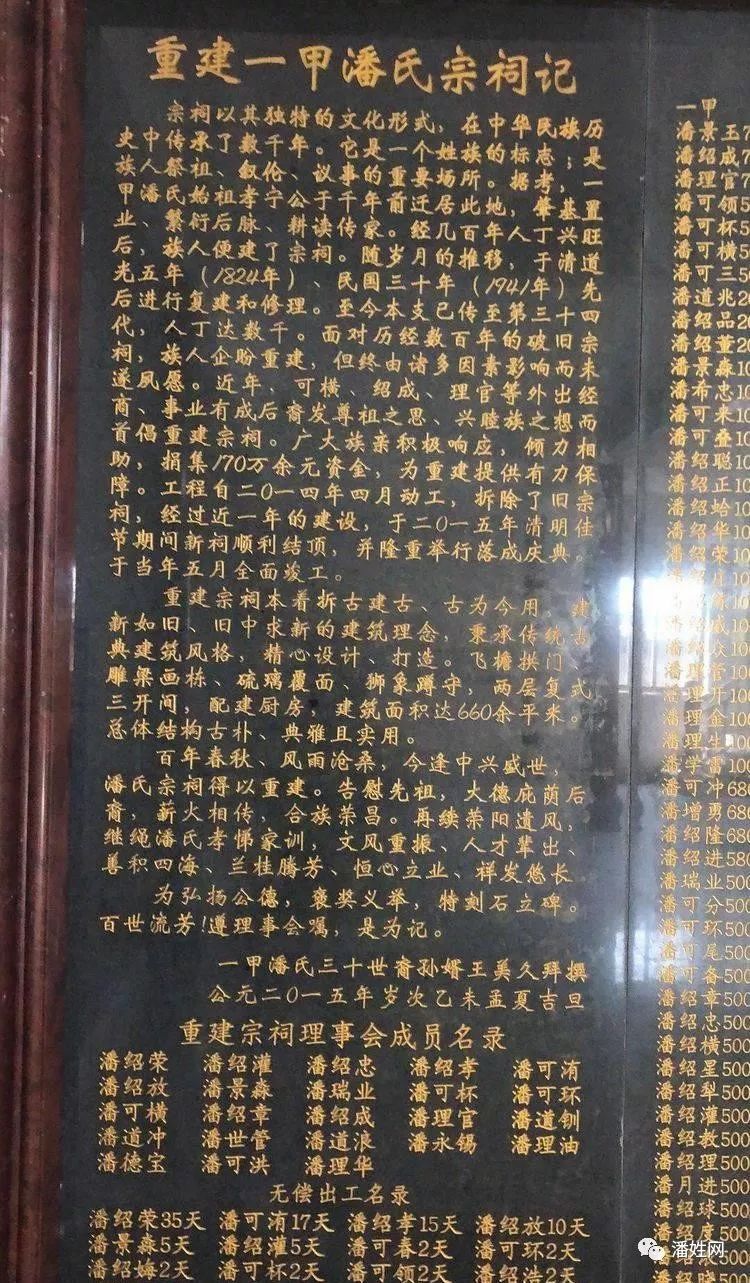 重建一甲潘氏宗祠记
宗祠以其独特的文化形式，在中华民族历
史中传承了数千年。它是一个姓族的标志；是
族人祭祖、叙伦、议事的重要场所。据考，一
甲潘氏始祖孝宁公于千年前迁居此地，肇基置
业、繁衍后脉、耕读传家。经几百年人丁兴旺
后，族人便建了宗祠。随岁月的推移，于清道
光五年（1824年）、民国三十年（1941年）先
后进行复建和修理。至今本支已传至第三十四
代，人丁达数千。面对历经数百年的破旧宗
祠，族人企盼重建，但终由诸多因素影响而未
遂夙愿。近年，可横、绍成、理官等外出经
商、事业有成后裔发尊祖之思、兴睦族之想而
首倡重建宗祠。广大族亲积极响应，倾力相
助，捐集170万余元资金，为重建提供有力保
障。工程自二〇一四年四月动工，拆除了旧宗
祠，经过近一年的建设，于二〇一五年清明佳
节期间新祠顺利结顶，并隆重举行落成庆典。
于当年五月全面竣工。
重建宗祠本着拆古建古、古为今用，建
新如旧，旧中求新的建筑理念，秉承传统古
典建筑风格，精心设计、打造。飞檐拱门、
雕梁画栋、硫璃覆面、狮象蹲守，两层复式
三开间，配建厨房，建筑面积达660余平米。
总体结构古朴、典雅且实用。
百年春秋、风雨沧桑，今逢中兴盛世，
潘氏宗祠得以重建。告慰先祖，大德庇荫后
裔，薪火相传，合族荣昌。再续荥阳遗风，
继绳潘氏孝悌家训，文风重振、人才辈出、
善积四海、兰桂腾芳、恒心立业、祥发悠长。
为弘扬公德，褒奖义举，特刻石立碑。
百世流芳！遵理事会嘱，是为记。
一甲潘氏三十世裔孙婿王美久拜撰
公元二〇一五年岁次乙未孟夏吉旦
重建宗祠理事会成员名录
潘绍荣 潘绍灌 潘绍忠 潘绍孝 潘可洧
潘绍放 潘景森 潘瑞业 潘可杯 潘可环
潘可横 潘绍章 潘绍成 潘理官 潘道钏
潘道冲 潘世管 潘道浪 潘永锡 潘理油
潘德宝 潘可洪 潘理华
无偿出工名录
潘绍荣35天 潘可洧17天 潘绍孝15天 潘绍放10天
潘景森5天 潘绍灌5天 潘可春2天 潘可环2天
潘绍娒2天 潘可杯2天 潘可领2天 潘绍浩2天
一甲
潘景玉
潘绍成
潘理官
潘可领5
潘可杯5
潘可横5
潘可三5
潘道兆2
潘绍品2
潘绍董20
潘景森10
潘希忠10
潘可来10
潘可叠10
潘绍聪10
潘绍正10
潘绍蛤10
潘绍华10
潘绍荣10
月10
10
成10
众100
潘理管100
潘理开100
潘理金100
潘理生100
潘学雷100
潘可冲68
潘增勇68
潘绍隆68
潘绍进580
潘瑞业500
潘可分500
潘可环500
潘可尾500
潘可备500
潘绍章500
潘绍忠500
潘绍横500
潘绍星500
潘绍犁500
潘绍灌500
潘绍教500
潘绍理500
潘月进500
潘绍球500
潘绍度500
500
潘姓网